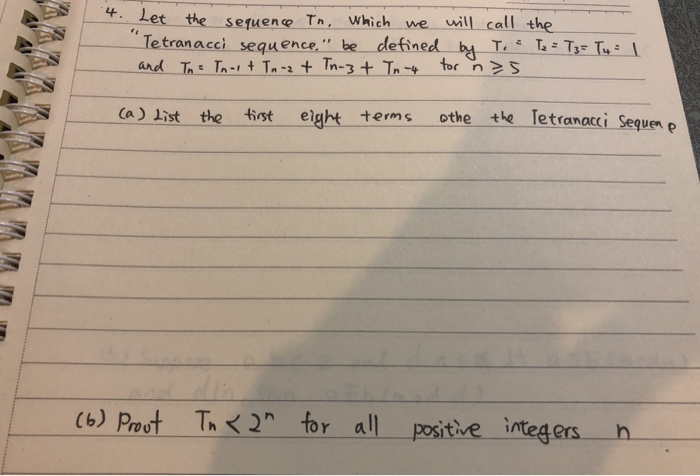 4. Let the sequence Tn, which we will call the
"Tetranacci sequence," be defined by T₁ = T₂ = T₃ = T₄ = 1
and Tn = Tn-1 + Tn-2 + Tn-3 + Tn-4 for n ≥ 5
(a) List the first eight terms othe the Tetranacci Sequene
(b) Proof Tn < 2ⁿ for all positive integers n